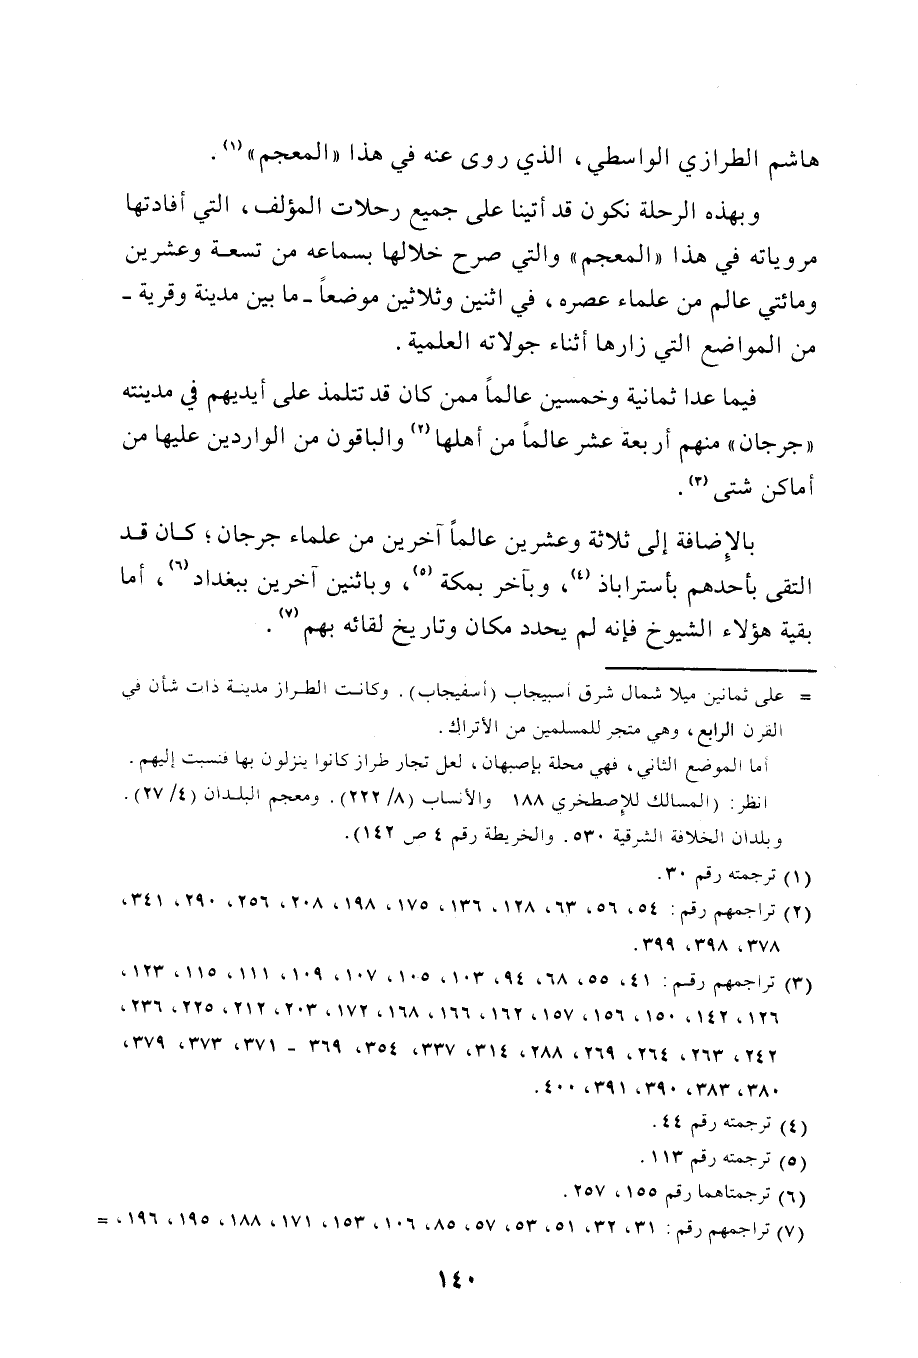 هاشم الطرازي الواسطي، الذي روى عنه في هذا «المعجم»(١).
وبهذه الرحلة نكون قد أتينا على جميع رحلات المؤلف، التي أفادتها
مروياته في هذا «المعجم» والتي صرح خلالها بسماعه من تسعة وعشرين
ومائتي عالم من علماء عصره، في اثنين وثلاثين موضعاً ـ ما بين مدينة وقرية ـ
من المواضع التي زارها أثناء جولاته العلمية.
فيما عدا ثمانية وخمسين عالماً ممن كان قد تتلمذ على أيديهم في مدينته
«جرجان» منهم أربعة عشر عالماً من أهلها(٢) والباقون من الواردين عليها من
أماكن شتى(٣).
بالإضافة إلى ثلاثة وعشرين عالماً آخرين من علماء جرجان؛ كان قد
التقى بأحدهم بأستراباذ(٤)، وبآخر بمكة(٥)، وباثنين آخرين ببغداد(٦)، أما
بقية هؤلاء الشيوخ فإنه لم يحدد مكان وتاريخ لقائه بهم(٧).
= على ثمانين ميلا شمال شرق أسبيجاب (أسفيجاب). وكانت الطراز مدينة ذات شأن في
القرن الرابع، وهي متجر للمسلمين من الأتراك.
أما الموضع الثاني، فهي محلة بإصبهان، لعل تجار طراز كانوا ينزلون بها فنسبت إليهم.
انظر: (المسالك للإصطخري ١٨٨ والأنساب (٨/ ٢٢٢). ومعجم البلدان (٤/ ٢٧).
وبلدان الخلافة الشرقية ٥٣٠. والخريطة رقم ٤ ص ١٤٢).
(١) ترجمته رقم ٣٠.
(٢) تراجمهم رقم: ٥٤، ٥٦، ٦٣، ١٢٨، ١٣٦، ١٧٥، ١٩٨، ٢٠٨، ٢٥٦، ٢٩٠، ٣٤١،
٣٧٨، ٣٩٨، ٣٩٩.
(٣) تراجمهم رقم: ٤١، ٥٥، ٦٨، ٩٤، ١٠٣، ١٠٥، ١٠٧، ١٠٩، ١١١، ١١٥، ١٢٣،
١٢٦، ١٤٢، ١٥٠، ١٥٦، ١٥٧، ١٦٢، ١٦٦، ١٦٨، ١٧٢، ٢٠٣، ٢١٢، ٢٢٥، ٢٣٦،
٢٤٢، ٢٦٣، ٢٦٤، ٢٦٩، ٢٨٨، ٣١٤، ٣٣٧، ٣٥٤، ٣٦٩ ـ ٣٧١، ٣٧٣، ٣٧٩،
٣٨٠، ٣٨٣، ٣٩٠، ٣٩١، ٤٠٠.
(٤) ترجمته رقم ٤٤.
(٥) ترجمته رقم ١١٣.
(٦) ترجمتاهما رقم ١٥٥، ٢٥٧.
(٧) تراجمهم رقم: ٣١، ٣٢، ٥١، ٥٣، ٥٧، ٨٥، ١٠٦، ١٥٣، ١٧١، ١٨٨، ١٩٥، ١٩٦، =
١٤٠